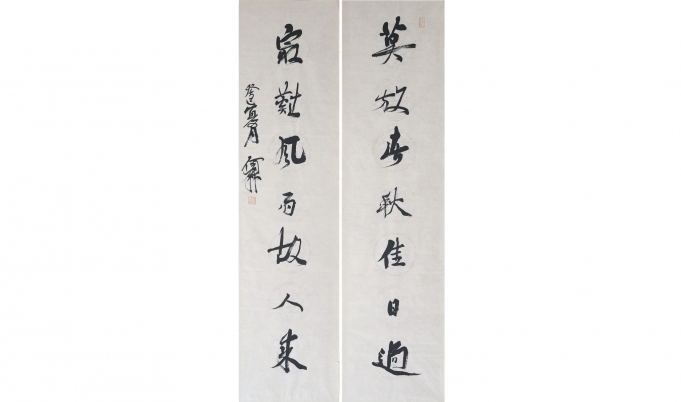 莫放春秋佳日過
最難風雨故人來
癸巳